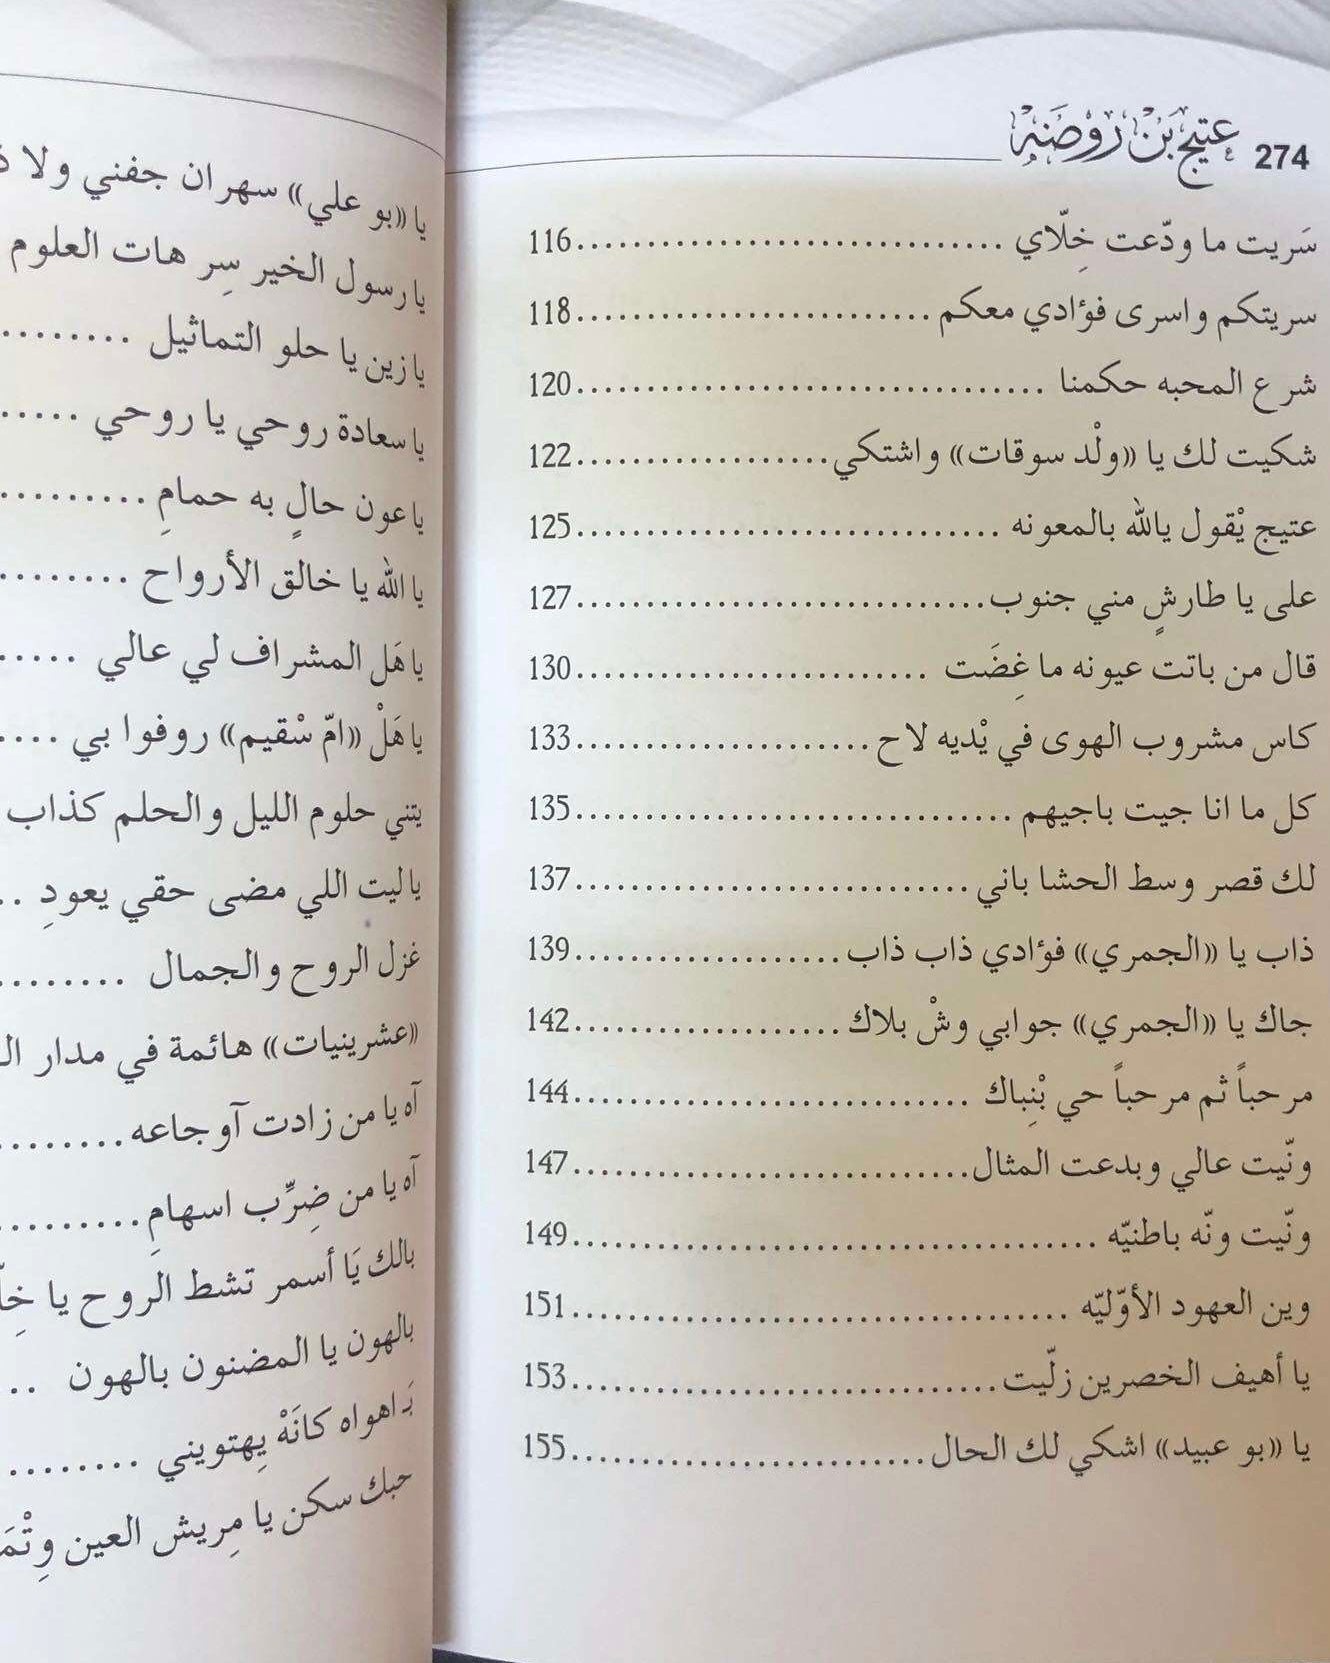 274 عتيج بن روضه
سَريت ما ودّعت خِلّاي ................................ 116
سريتكم واسرى فؤادي معكم ........................... 118
شرع المحبه حكمنا ................................... 120
شكيت لك يا «ولْد سوقات» واشتكي ................... 122
عتيج يْقول يالله بالمعونه ............................... 125
على يا طارشٍ مني جنوب .............................. 127
قال من باتت عيونه ما غِضَت .......................... 130
كاس مشروب الهوى في يْديه لاح ...................... 133
كل ما انا جيت باجيهم ................................. 135
لك قصر وسط الحشا باني ............................. 137
ذاب يا «الجمري» فؤادي ذاب ذاب .................... 139
جاك يا «الجمري» جوابي وشْ بلاك .................... 142
مرحباً ثم مرحباً حي بْنِباك ............................. 144
ونّيت عالي وبدعت المثال .............................. 147
ونّيت ونّه باطنيّه ....................................... 149
وين العهود الأوّليّه ..................................... 151
يا أهيف الخصرين زلّيت ................................ 153
يا «بو عبيد» اشكي لك الحال .......................... 155
يا «بو علي» سهران جفني ولا
يا رسول الخير سِر هات العلوم
يا زين يا حلو التماثيل ........
يا سعادة روحي يا روحي .....
يا عون حالٍ به حمامِ .........
يا الله يا خالق الأرواح ........
يا هَل المشراف لي عالي .....
يا هَلْ «امّ سْقيم» روفوا بي ....
يتني حلوم الليل والحلم كذاب
يا ليت اللي مضى حقي يعودِ ..
غزل الروح والجمال ........
«عشرينيات» هائمة في مدار
آه يا من زادت آوجاعه ........
آه يا من ضِرِّب اسهامِ .........
بالك يَا أسمر تشط الروح يا
بالهون يا المضنون بالهون ..
بـَ اهواه كانَهْ يِهتويني ........
حبك سكن يا مِريش العين